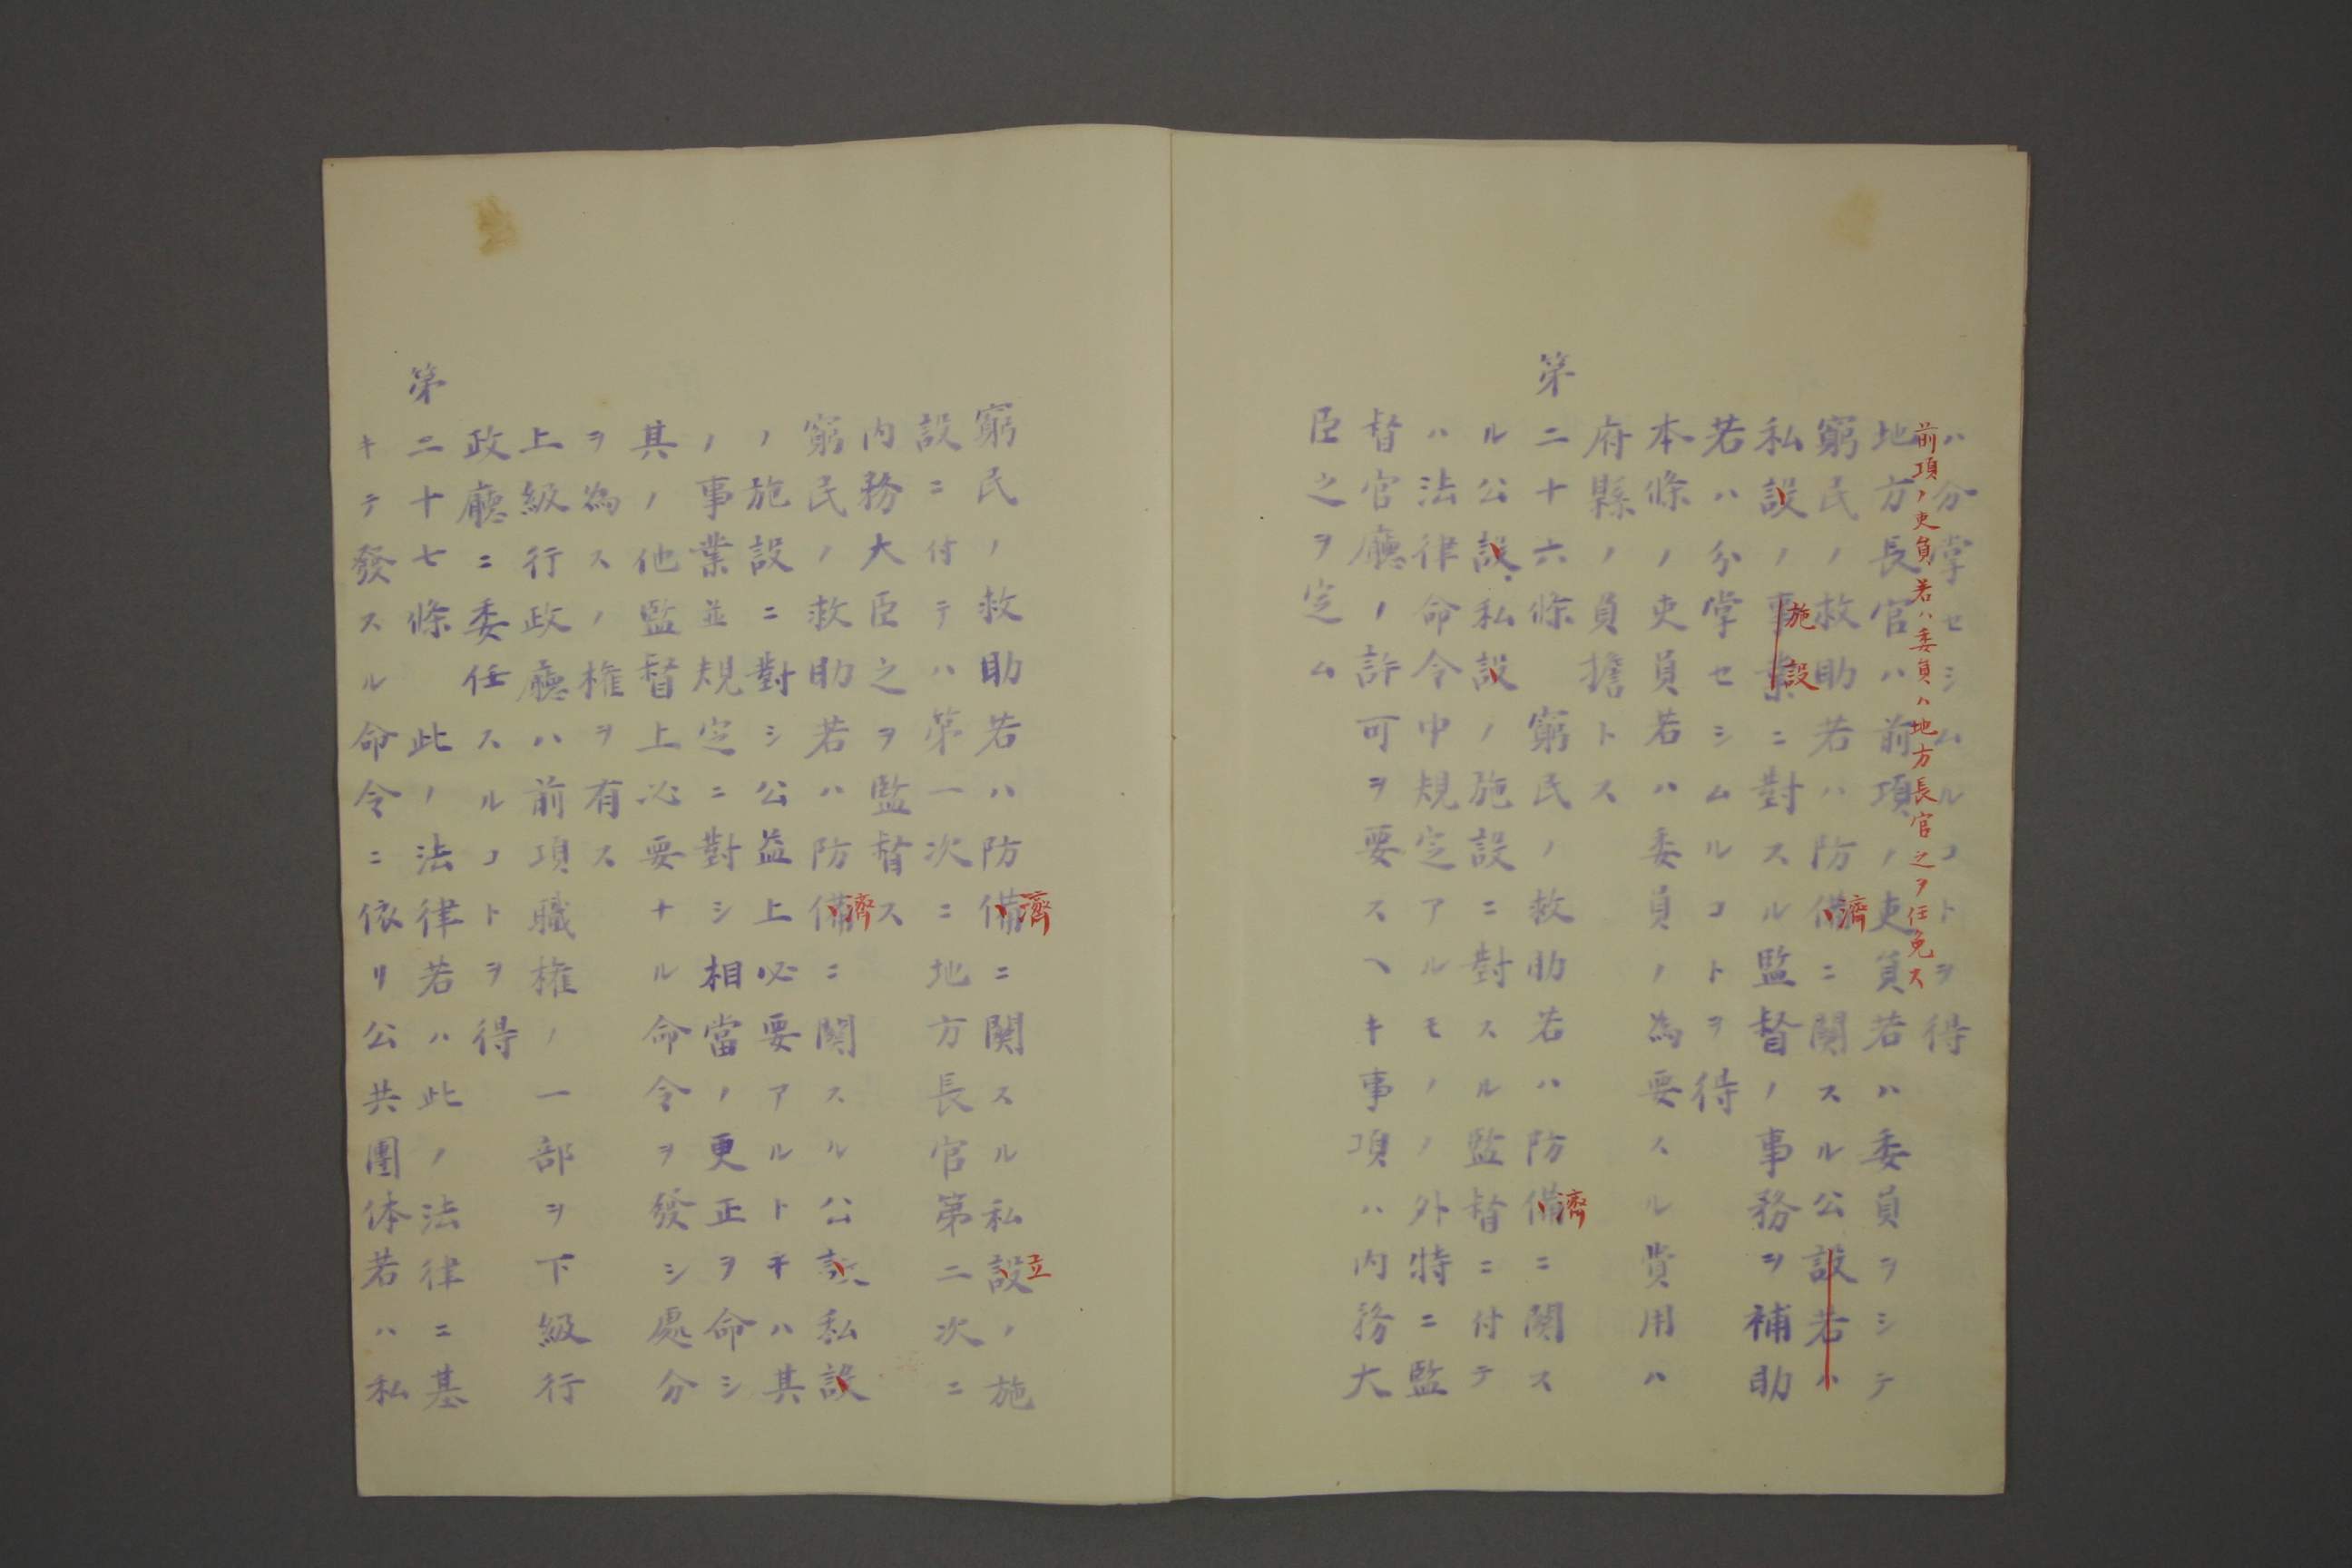 ハ分掌セシムルコトヲ得
前項ノ吏員若ハ委員ハ地方長官之ヲ任免ス
地方長官ハ前項ノ吏員若ハ委員ヲシテ
窮民ノ救助若ハ防備ニ關スル公設若ハ
濟
私設ノ事業ニ對スル監督ノ事務ヲ補助
施設
若ハ分掌セシムルコトヲ得
本條ノ吏員若ハ委員ノ為要スル費用ハ
府縣ノ負擔トス
第二十六條 窮民ノ救助若ハ防備ニ關ス
濟
ル公設、私設ノ施設ニ對スル監督ニ付テ
ハ法律命令中規定アルモノノ外特ニ監
督官廳ノ許可ヲ要スヘキ事項ハ内務大
臣之ヲ定ム
窮民ノ救助若ハ防備ニ關スル私設ノ施
濟
立
設ニ付テハ第一次ニ地方長官第二次ニ
内務大臣之ヲ監督ス
窮民ノ救助若ハ防備ニ關スル公設私設
濟
ノ施設ニ對シ公益上必要アルトキハ其
ノ事業並規定ニ對シ相當ノ更正ヲ命シ
其ノ他監督上必要ナル命令ヲ發シ處分
ヲ為スノ権ヲ有ス
上級行政廳ハ前項職権ノ一部ヲ下級行
政廳ニ委任スルコトヲ得
第二十七條 此ノ法律若ハ此ノ法律ニ基
キテ發スル命令ニ依リ公共團体若ハ私